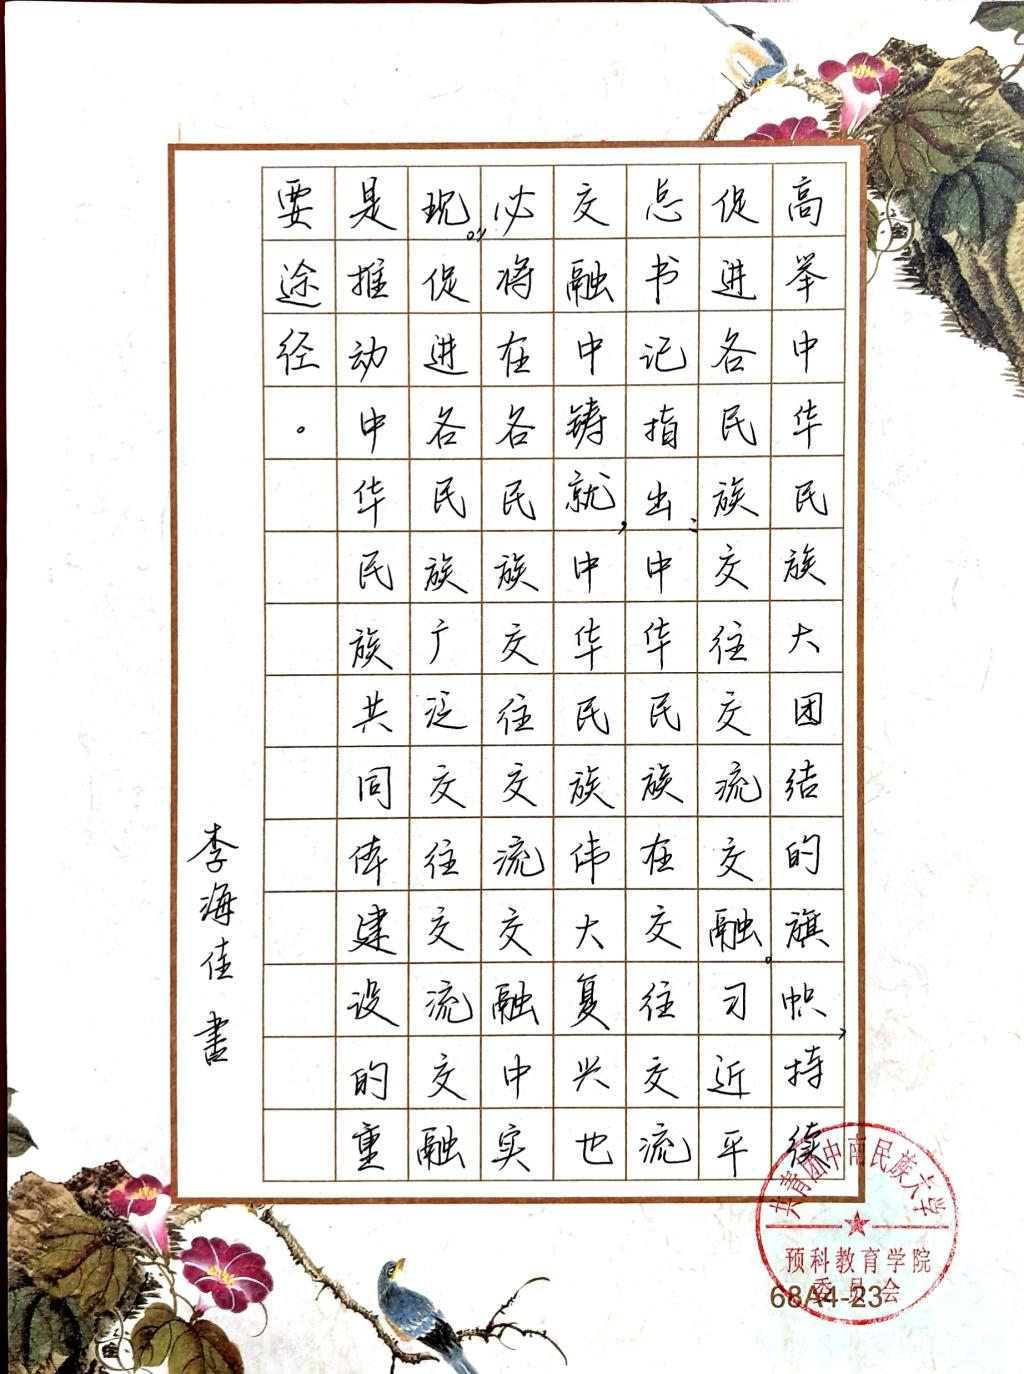 高举中华民族大团结的旗帜,持续
促进各民族交往交流交融。习近平
总书记指出:中华民族在交往交流
交融中铸就,中华民族伟大复兴也
必将在各民族交往交流交融中实
现。”促进各民族广泛交往交流交融
是推动中华民族共同体建设的重
要途径。
李海佳書
共青团中南民族大学
预科教育学院
委员会
68A4-23